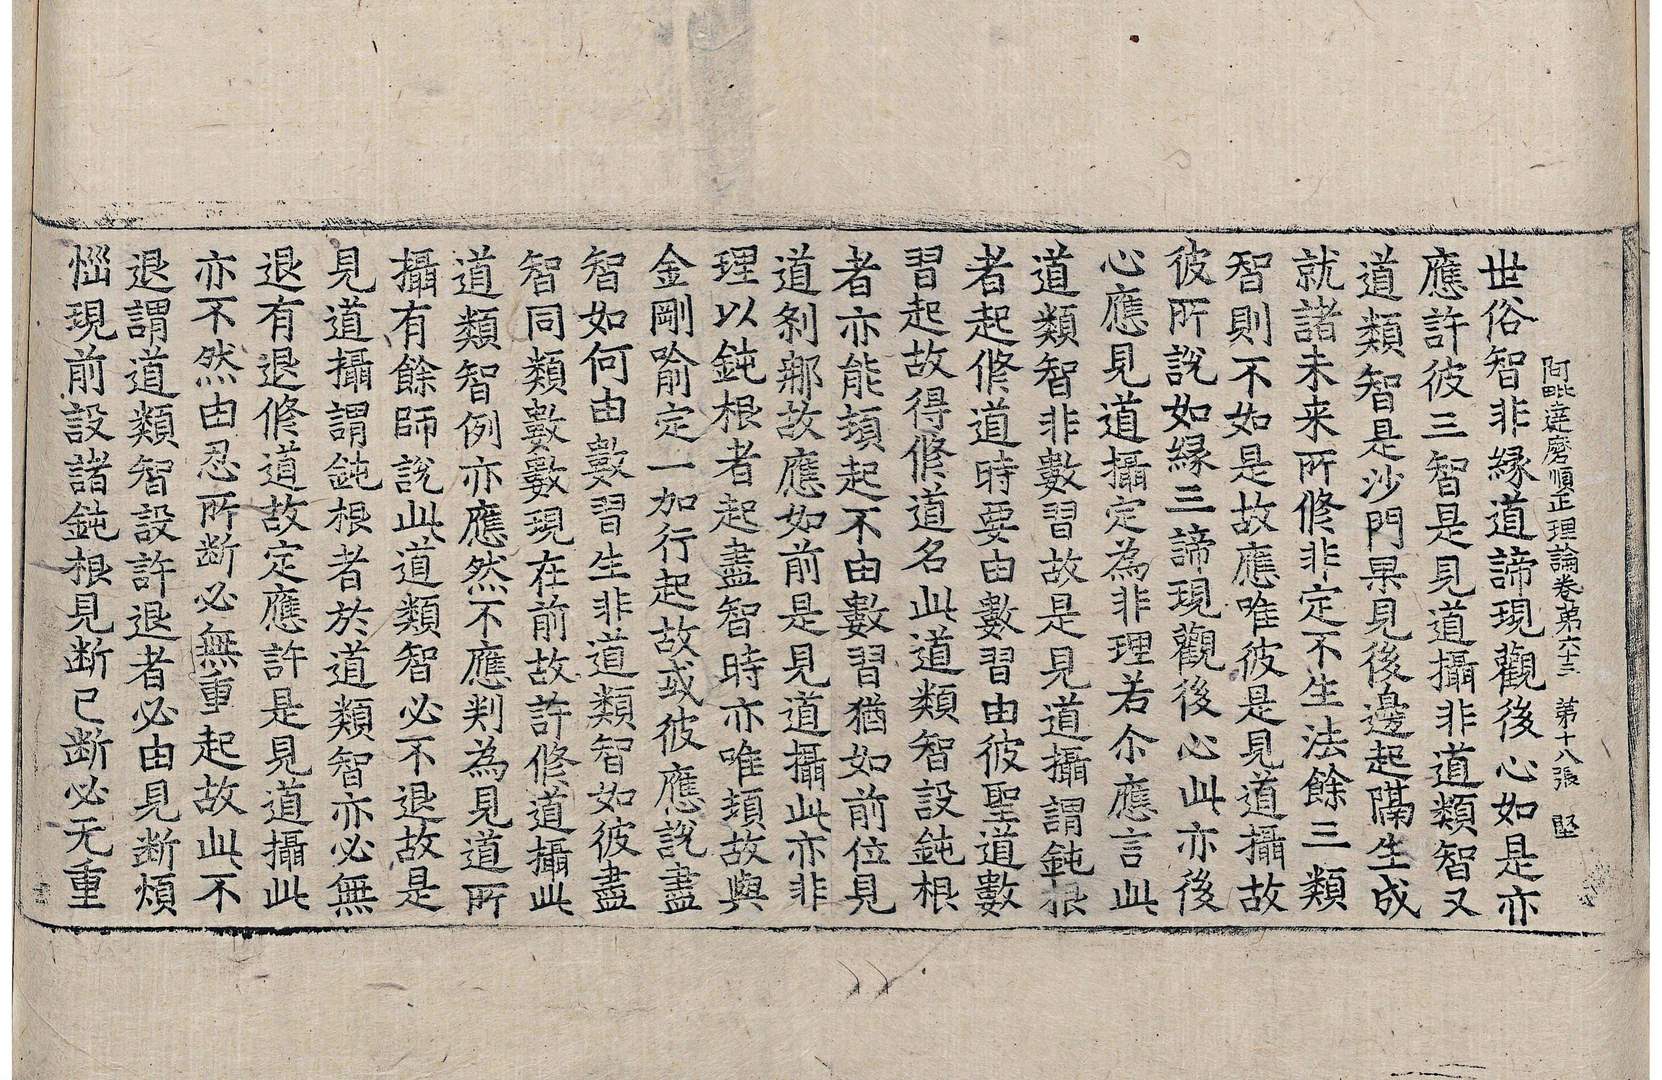 阿毗達磨順正理論卷第六十三 第十八張 堅
世俗智非緣道諦現觀後心如是亦
應許彼三智是見道攝非道類智又
道類智是沙門果見後邊起隔生成
就諸未来所修非定不生法餘三類
智則不如是故應唯彼是見道攝故
彼所說如緣三諦現觀後心此亦後
心應見道攝定為非理若尒應言此
道類智非數習故是見道攝謂鈍根
者起修道時要由數習由彼聖道數
習起故得修道名此道類智設鈍根
者亦能頓起不由數習猶如前位見
道剎那故應如前是見道攝此亦非
理以鈍根者起盡智時亦唯頓故與
金剛喻定一加行起故或彼應說盡
智如何由數習生非道類智如彼盡
智同類數數現在前故許修道攝此
道類智例亦應然不應判為見道所
攝有餘師說此道類智必不退故是
見道攝謂鈍根者於道類智亦必無
退有退修道故定應許是見道攝此
亦不然由忍所断必無重起故此不
退謂道類智設許退者必由見断煩
惱現前設諸鈍根見断已断必无重